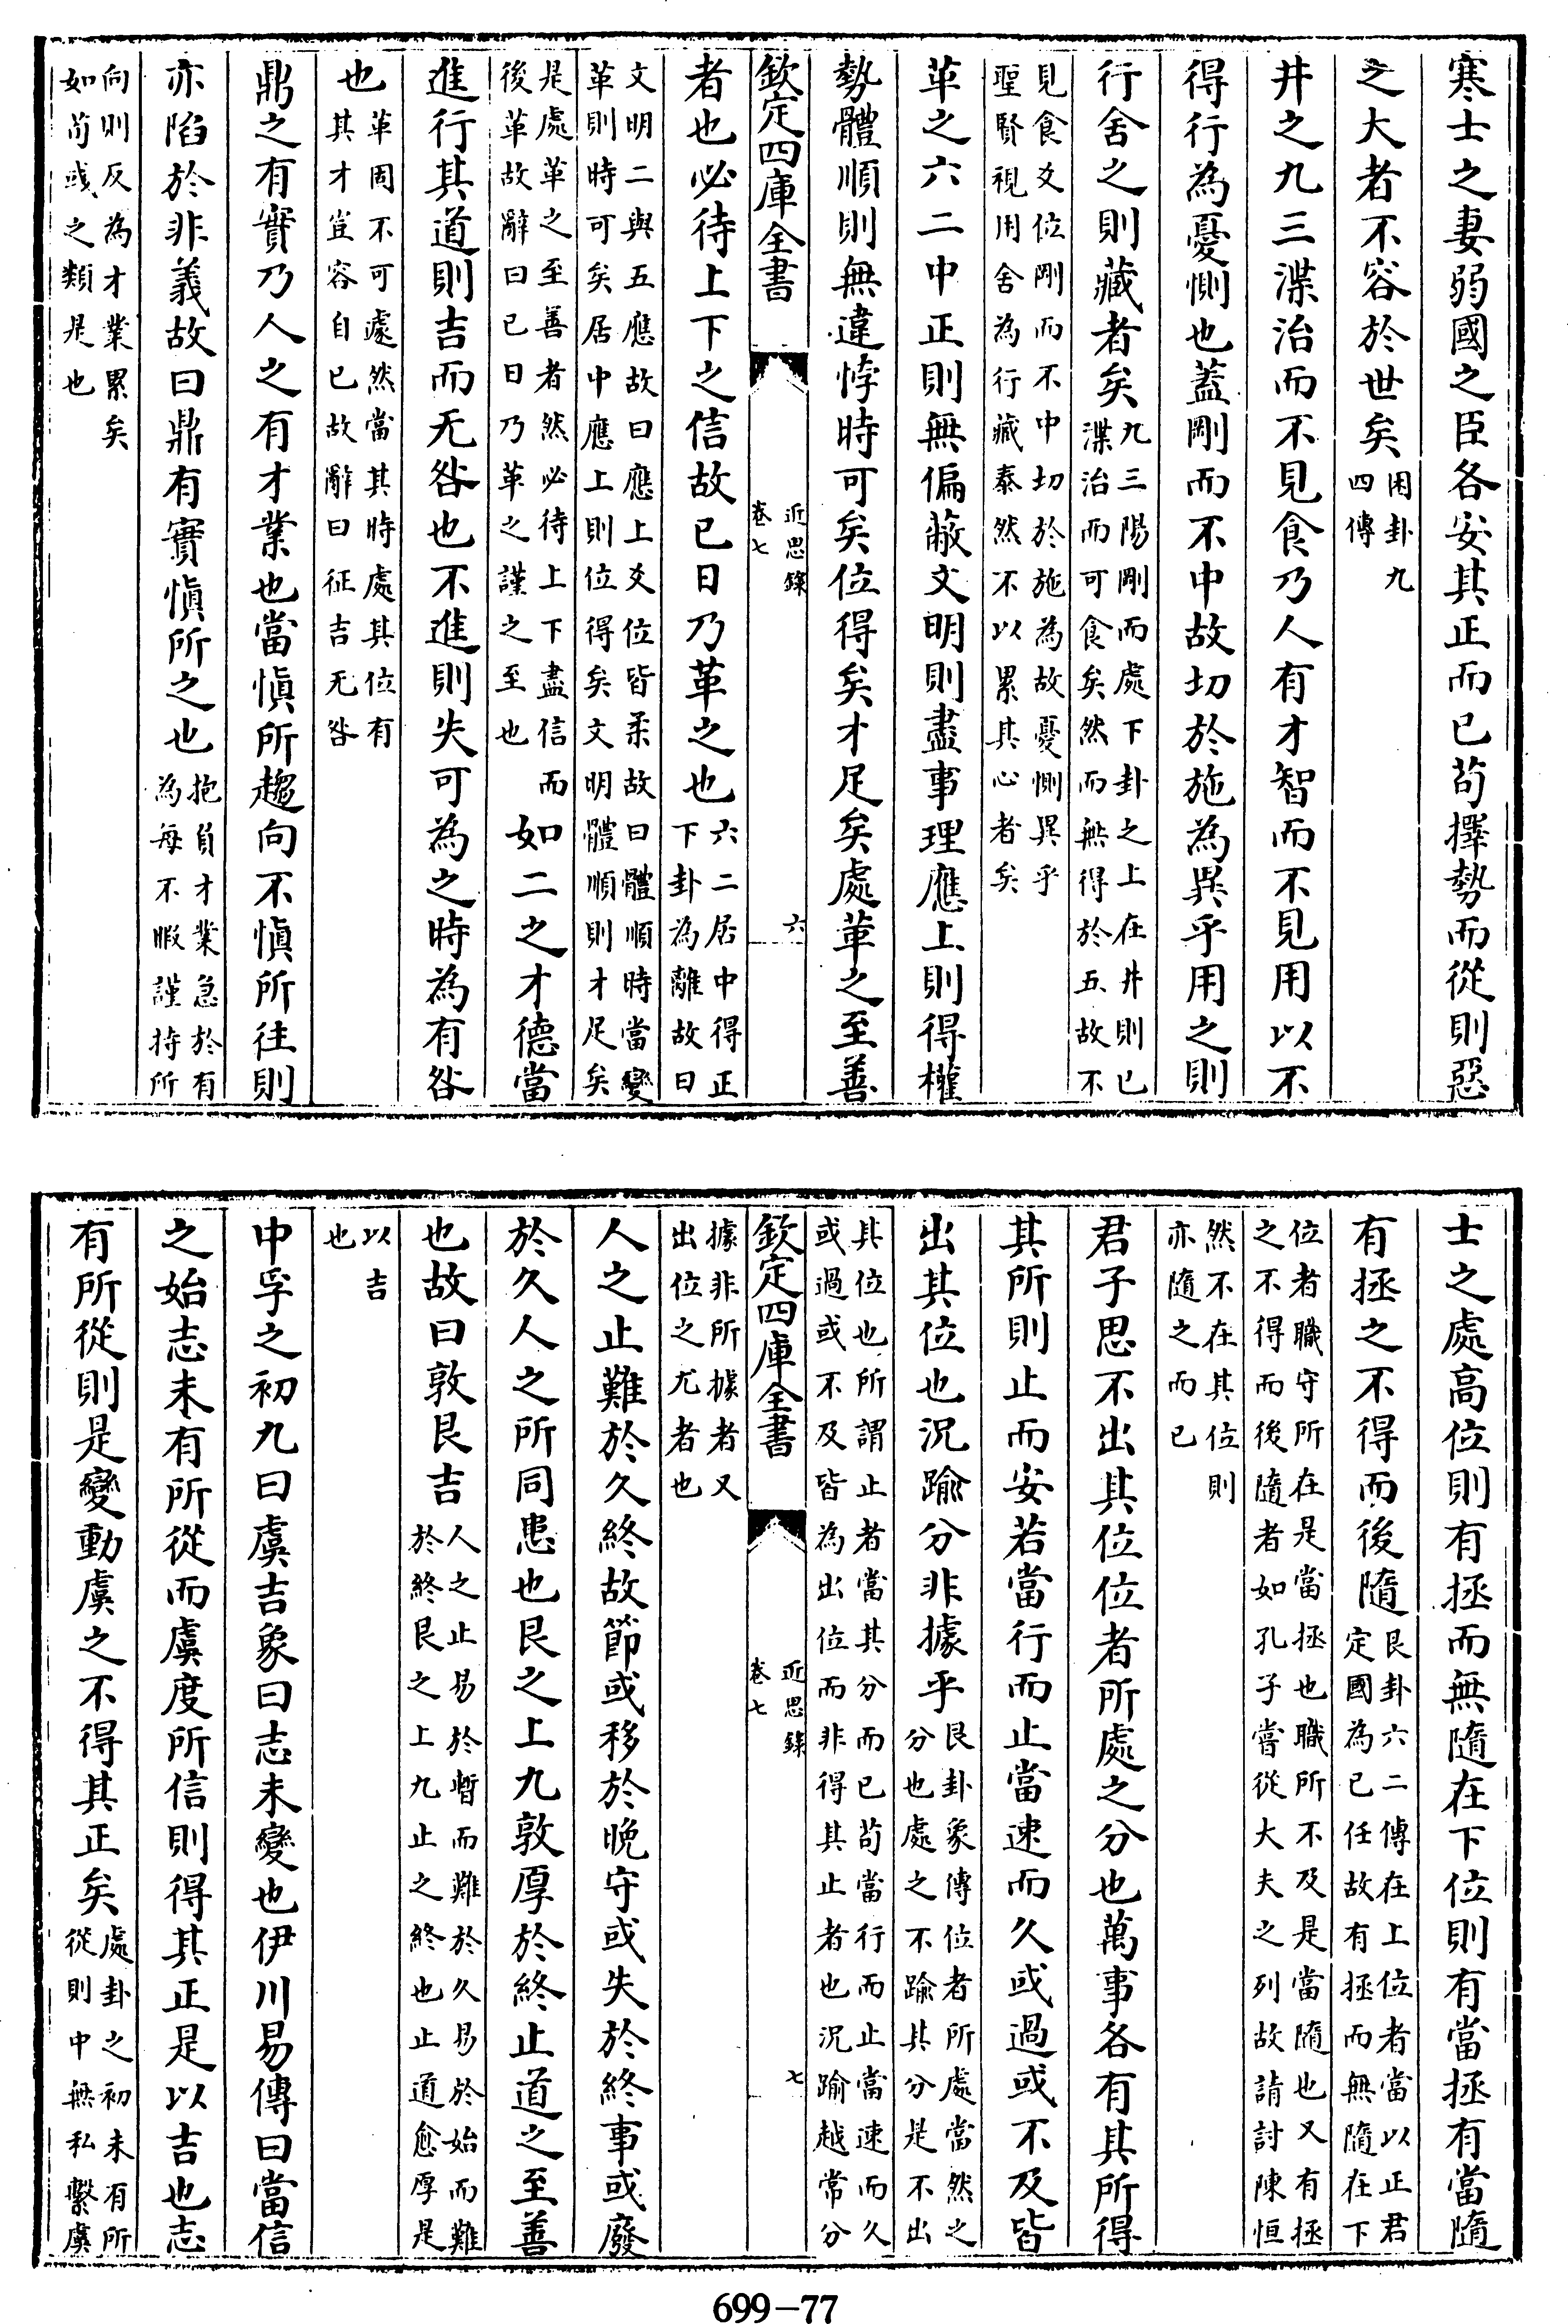 寒士之妻弱國之臣各安其正而已苟擇勢而從則惡
之大者不容於世矣困卦九
四傳
井之九三渫治而不見食乃人有才智而不見用以不
得行為憂惻也蓋剛而不中故切於施為異乎用之則
行舍之則藏者矣九三陽剛而處下卦之上在井則已
渫治而可食矣然而無得於五故不
見食爻位剛而不中切於施為故憂惻異乎
聖賢視用舍為行藏泰然不以累其心者矣
革之六二中正則無偏蔽文明則盡事理應上則得權
勢體順則無違悖時可矣位得矣才足矣處革之至善
欽定四庫全書
近思錄
卷七
六
者也必待上下之信故已日乃革之也六二居中得正
下卦為離故曰
文明二與五應故曰應上爻位皆柔故曰體順時當變
革則時可矣居中應上則位得矣文明體順則才足矣
是處革之至善者然必待上下盡信而
後革故辭曰已日乃革之謹之至也
如二之才德當
進行其道則吉而无咎也不進則失可為之時為有咎
也革固不可遽然當其時處其位有
其才豈容自已故辭曰征吉无咎
鼎之有實乃人之有才業也當慎所趨向不慎所往則
亦陷於非義故曰鼎有實慎所之也抱負才業急於有
為每不暇謹持所
向則反為才業累矣
如荀彧之類是也
士之處高位則有拯而無隨在下位則有當拯有當隨
有拯之不得而後隨艮卦六二傳在上位者當以正君
定國為已任故有拯而無隨在下
位者職守所在是當拯也職所不及是當隨也又有拯
之不得而後隨者如孔子嘗從大夫之列故請討陳恒
然不在其位則
亦隨之而已
君子思不出其位位者所處之分也萬事各有其所得
其所則止而安若當行而止當速而久或過或不及皆
出其位也況踰分非據乎艮卦象傳位者所處當然之
分也處之不踰其分是不出
其位也所謂止者當其分而已苟當行而止當速而久
或過或不及皆為出位而非得其止者也況踰越常分
欽定四庫全書
近思錄
卷七
七
據非所據者又
出位之尤者也
人之止難於久終故節或移於晚守或失於終事或廢
於久人之所同患也艮之上九敦厚於終止道之至善
也故曰敦艮吉人之止易於暫而難於久易於始而難
於終艮之上九止之終也止道愈厚是
以吉
也
中孚之初九曰虞吉象曰志未變也伊川易傳曰當信
之始志未有所從而虞度所信則得其正是以吉也志
有所從則是變動虞之不得其正矣處卦之初未有所
從則中無私繫虞
699-77